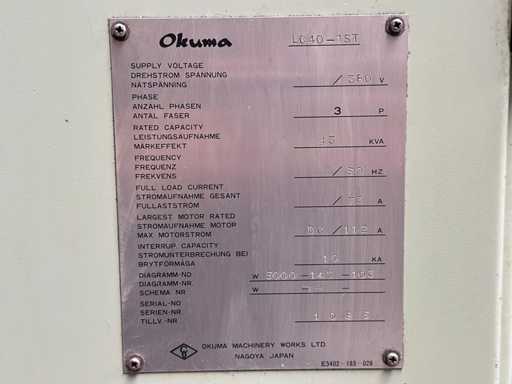 Okuma LC40-1ST
SUPPLY VOLTAGE
DREHSTROM SPANNUNG /380 V
NÄTSPÄNNING
PHASE
ANZAHL PHASEN 3 P
ANTAL FASER
RATED CAPACITY
LEISTUNGSAUFNAHME KVA
MÄRKEFFEKT
FREQUENCY
FREQUENZ HZ
FREKVENS
FULL LOAD CURRENT
STROMAUFNAHME GESAMT A
FULLASTSTROM
LARGEST MOTOR RATED
STROMAUFNAHME MOTOR A
MAX MOTORSTROM
INTERRUP. CAPACITY
STROMUNTERBRECHUNG BEI 10 KA
BRYTFÖRMÅGA
DIAGRAMM-NO W
DIAGRAMM-NR. W
SCHEMA NR
SERIAL-NO
SERIEN-NR
TILLV.-NR
OKUMA MACHINERY WORKS LTD.
NAGOYA JAPAN
E5402-183-028